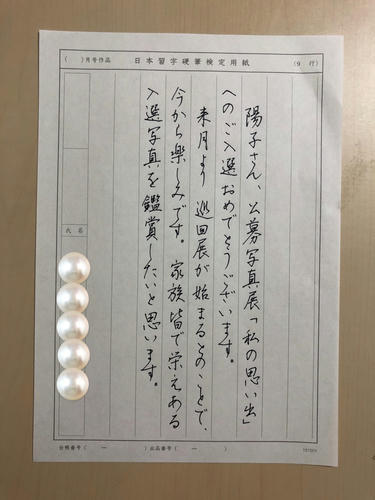 ( )月号作品
日本習字硬筆検定用紙
(9 行)
陽子さん、公募写真展「私の思い出」
へのご入選おめでとうございます。
来月より巡回展が始まるとのことで、
今から楽しみです。家族皆で栄えある
入選写真を鑑賞したいと思います。
氏名
台帳番号( ー )出品番号( ー )